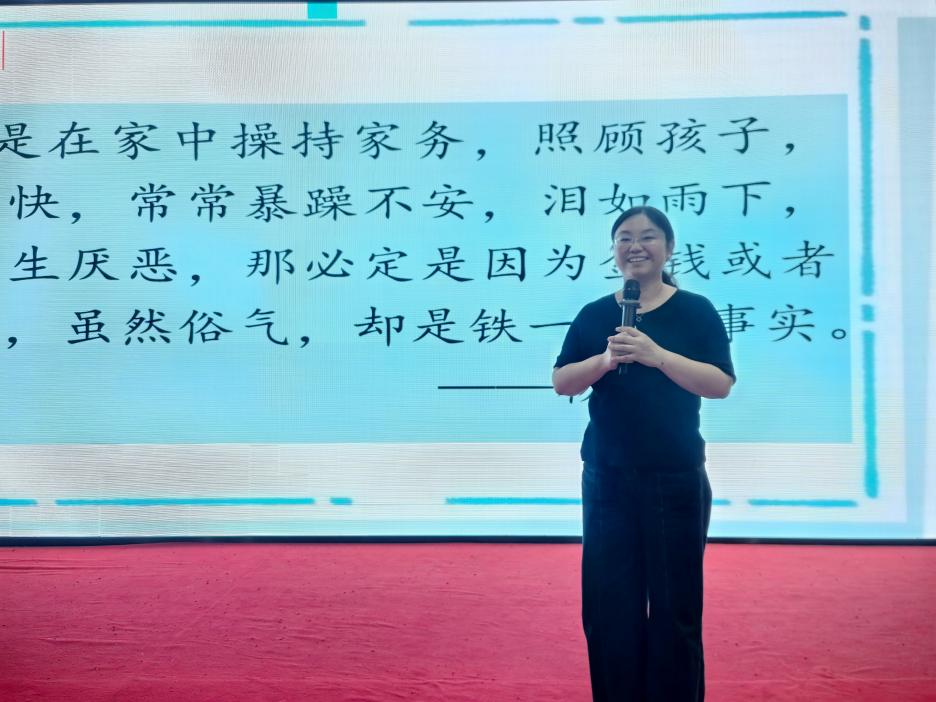 是在家中操持家务，照顾孩子，
快，常常暴躁不安，泪如雨下，
生厌恶，那必定是因为金钱或者
，虽然俗气，却是铁一事实。